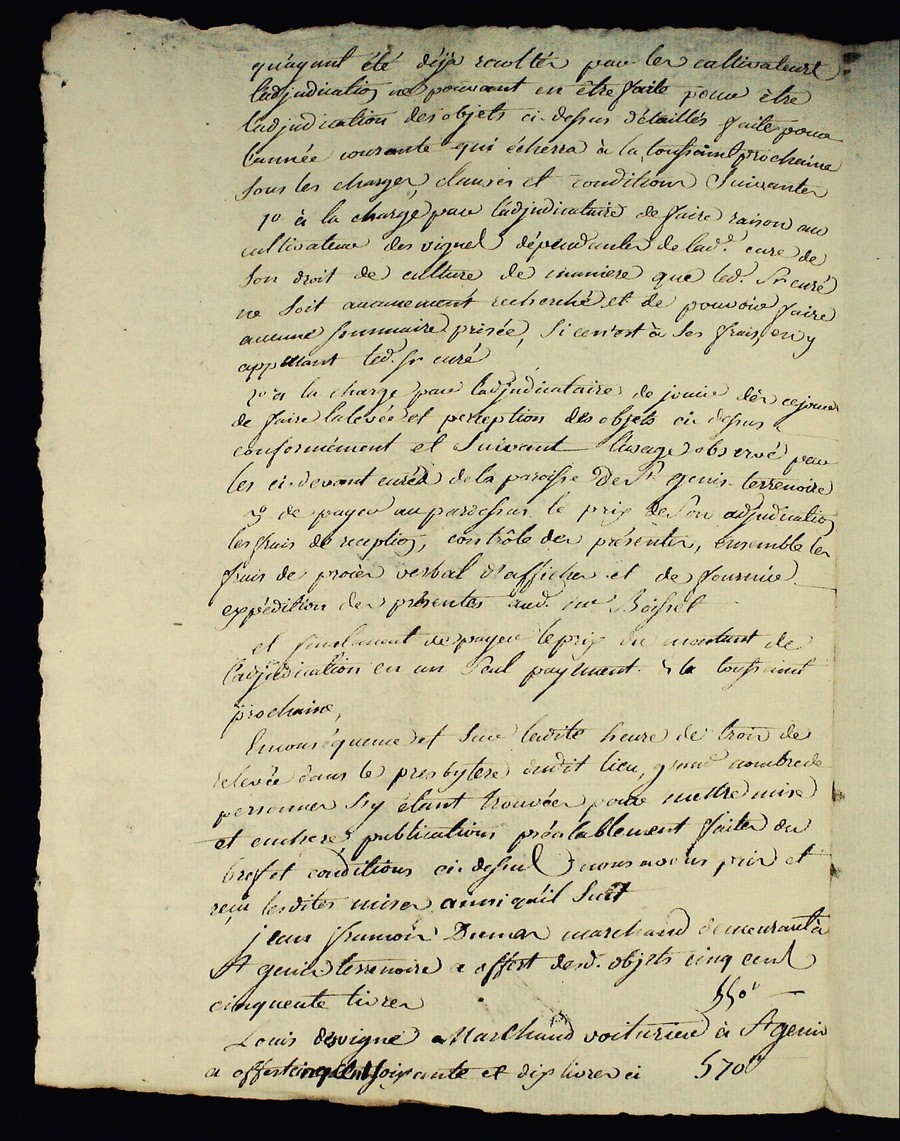 qu'ayant été déja recoltés par les cultivateurs
l'adjudication ne pouvant en être faite pour être
l'adjudication des objets ci-dessus détaillés faite pour
l'année courante qui échérra à la toussaint prochaine
sous les charges, clauses et conditions suivantes
1° à la charge par l'adjudicataire de faire raison au
cultivateur des vignes dépendantes de lad. cure de
son droit de culture de maniere que led. Sr curé
ne soit aucunement recherché et de pouvoir faire
aucune sommaire prisée, si ce n'est à ses frais, en y
appellant led. Sr curé
2° à la charge par l'adjudicataire de jouir dès ce jour
de faire la levée et perception des objets ci dessus
conformément et suivant l'usage observé par
les ci-devant curés de la paroisse de St genis-terrenoire
3° de payer au pardessus le prix de son adjudication
les frais de reception, contrôle des présentes, ensemble les
frais de procès verbal d'affiches et de fournir
expédition des présentes aud. Boisset
et finalement de payer le prix du montant de
l'adjudication en un seul payment à la toussaint
prochaine,
En conséquence et sur ladite heure de trois de
relevée dans le presbytere dudit lieu, grand nombre de
personnes s'y étant trouvées pour mettre mise
et enchere, publications préalablement faites du
bref et conditions ci-dessus nous avons pris et
reçu lesdites mises ainsi qu'il suit
jean françois Dumas marchand demeurant à
St genis terrenoire a offert desd. objets cinq cent
cinquante livres 550#
Louis devigne Marchand voiturier à St genis
a offert cinq cent soixante et dix livres ci 570#